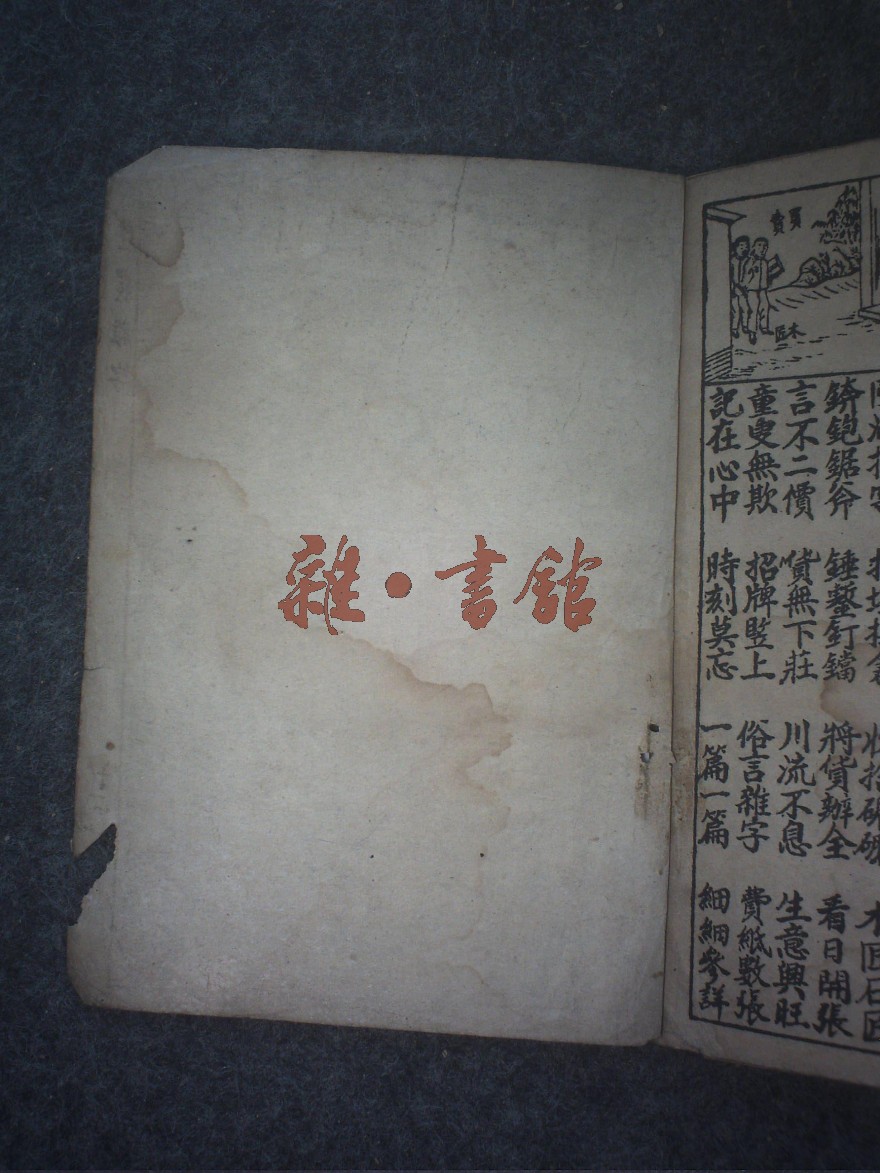 雜·書館
買賣
木匠
木匠石匠
錛鉋鋸斧 錘鏨釘鐺 將貨辦全 看日開張
言不二價 貨無下莊 川流不息 生意興旺
童叟無欺 招牌豎上 俗言雜字 費紙數張
記在心中 時刻莫忘 一篇一篇 細細參詳